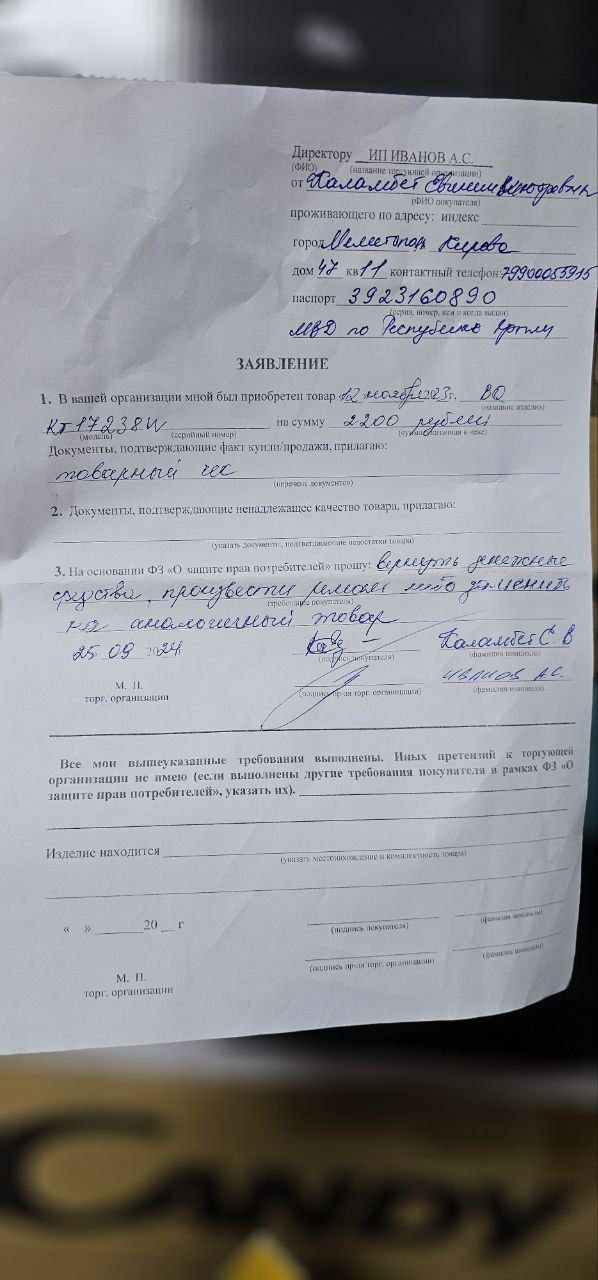 Директору ИП ИВАНОВ А.С.
(ФИО) (название торгующей организации)
от Каламбет
(ФИО покупателя)
проживающего по адресу: индекс
город Мелитополь Кирова
дом 47 кв 11 контактный телефон: 79900053915
паспорт 3923160890
(серия, номер, кем и когда выдан)
МВД по Республике
ЗАЯВЛЕНИЕ
1. В вашей организации мной был приобретен товар 12 ноября 23г. ВО
(название изделия)
КТ17238W на сумму 2200 рублей
(модель) (серийный номер) (сумма указанная в чеке)
Документы, подтверждающие факт купли/продажи, прилагаю:
товарный чес
(перечень документов)
2. Документы, подтверждающие ненадлежащее качество товара, прилагаю:
(указать документы, подтверждающие недостатки товара)
3. На основании ФЗ «О защите прав потребителей» прошу: вернуть денежные
средства, произвести ремонт либо заменить
(требование покупателя)
на аналогичный товар
25 09 2024 Каламбет Е. В
(подпись покупателя) (фамилия инициалы)
М. П. ИВАНОВ А.С.
торг. организации (подпись пр-ля торг. организации) (фамилия инициалы)
Все мои вышеуказанные требования выполнены. Иных претензий к торгующей
организации не имею (если выполнены другие требования покупателя в рамках ФЗ «О
защите прав потребителей», указать их).
Изделие находится
(указать местонахождение и комплектность товара)
« » 20 г
(подпись покупателя) (фамилия инициалы)
М. П.
торг. организации (подпись пр-ля торг. организации) (фамилия инициалы)
CANDY